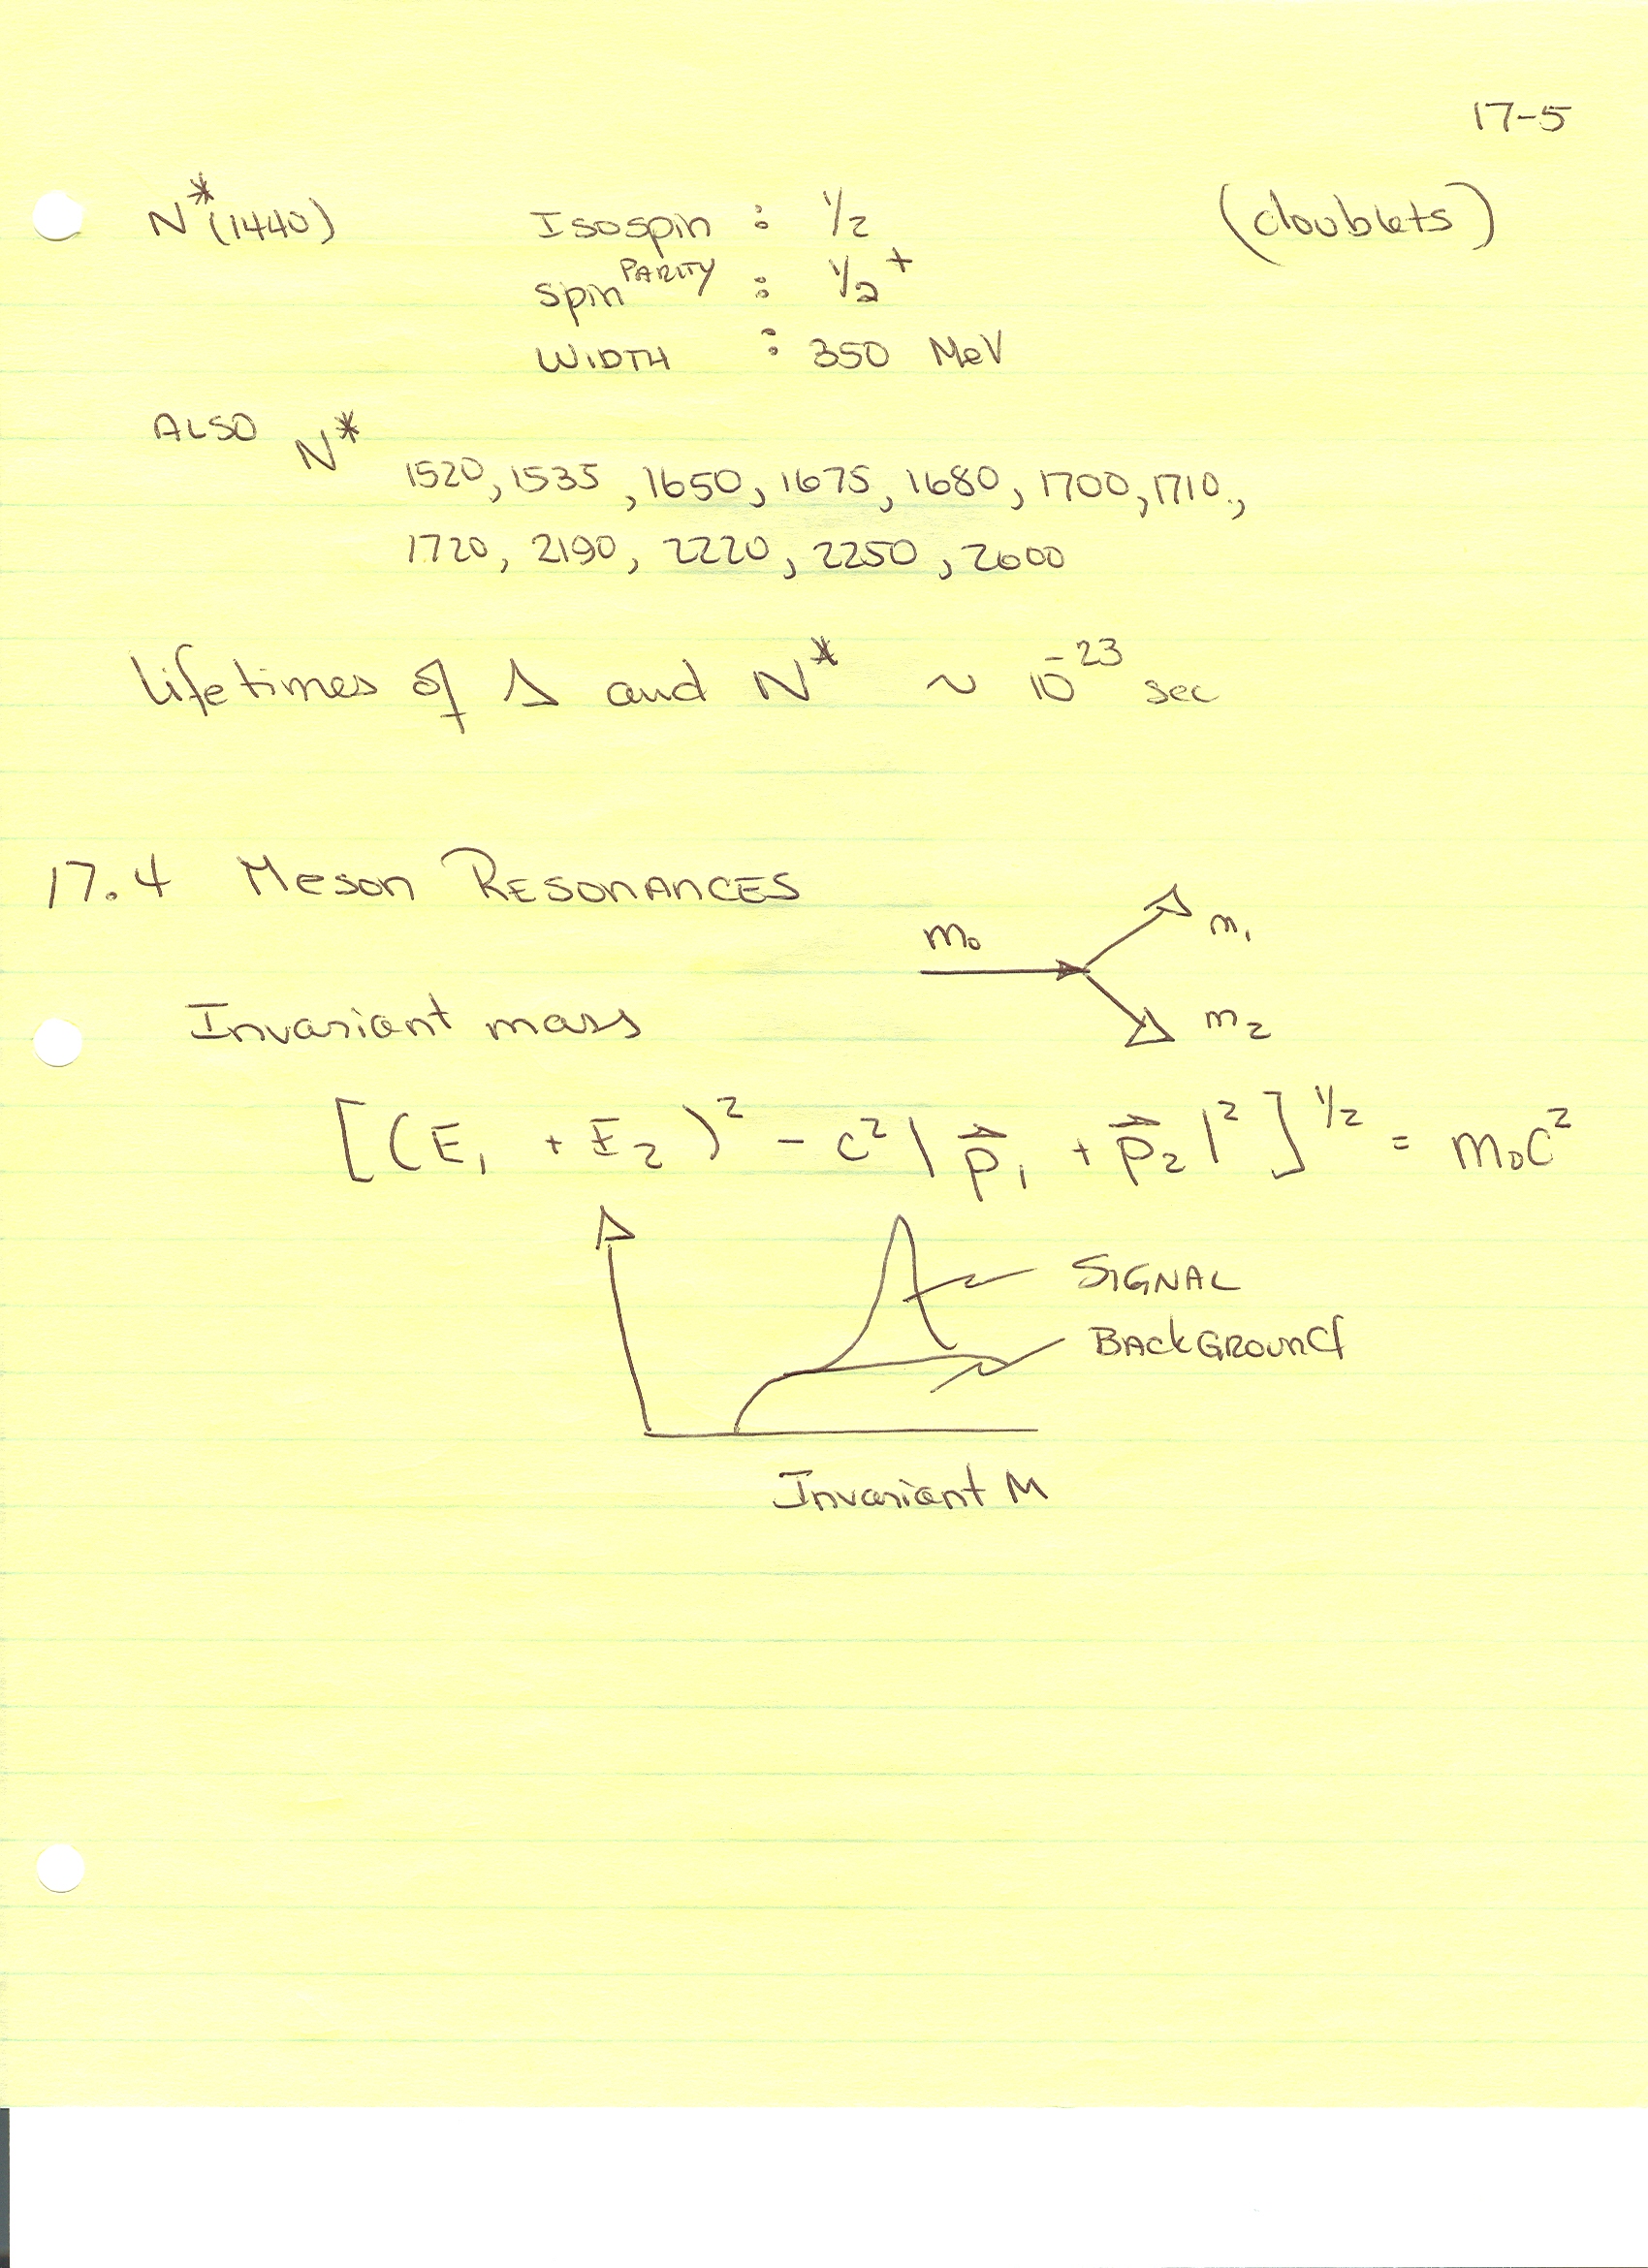 17-5
N*(1440) Isospin : 1/2 (doublets)
spin^PARITY : 1/2+
WIDTH : 350 MeV
ALSO N*
1520, 1535, 1650, 1675, 1680, 1700, 1710,
1720, 2190, 2220, 2250, 2600
Lifetimes of Δ and N* ~ 10^-23 sec
17.4 Meson RESONANCES
m₀ m₁
m₂
Invariant mass
[(E₁ + E₂)² - c² |p⃗₁ + p⃗₂|²]^1/2 = m₀c²
SIGNAL
BACkGROUNd
Invariant M